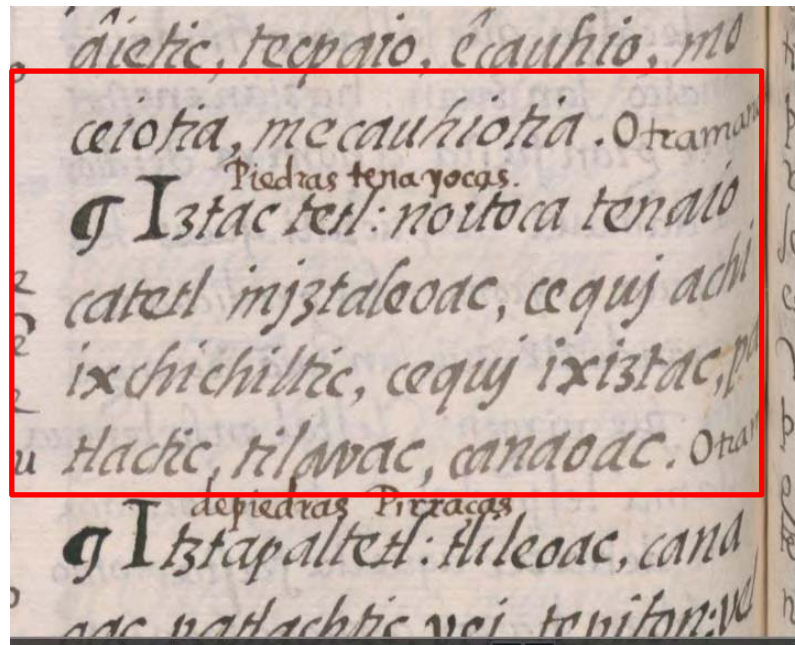 qietic, tecpaio, ecauhio, mo
ceiotia, mecauhiotia. Otra man
Piedras tenayocas.
¶ Iztac tetl: noitoca tenaio
catetl injztaleoac, cequj achi
ixchichiltic, cequj ixiztac, pa
tlactic, tilavac, canaoac. Otra
de piedras Pizzaças
¶ Itztapaltetl: tlileoac, cana
oac, patlachtic vei, tepiton: vel